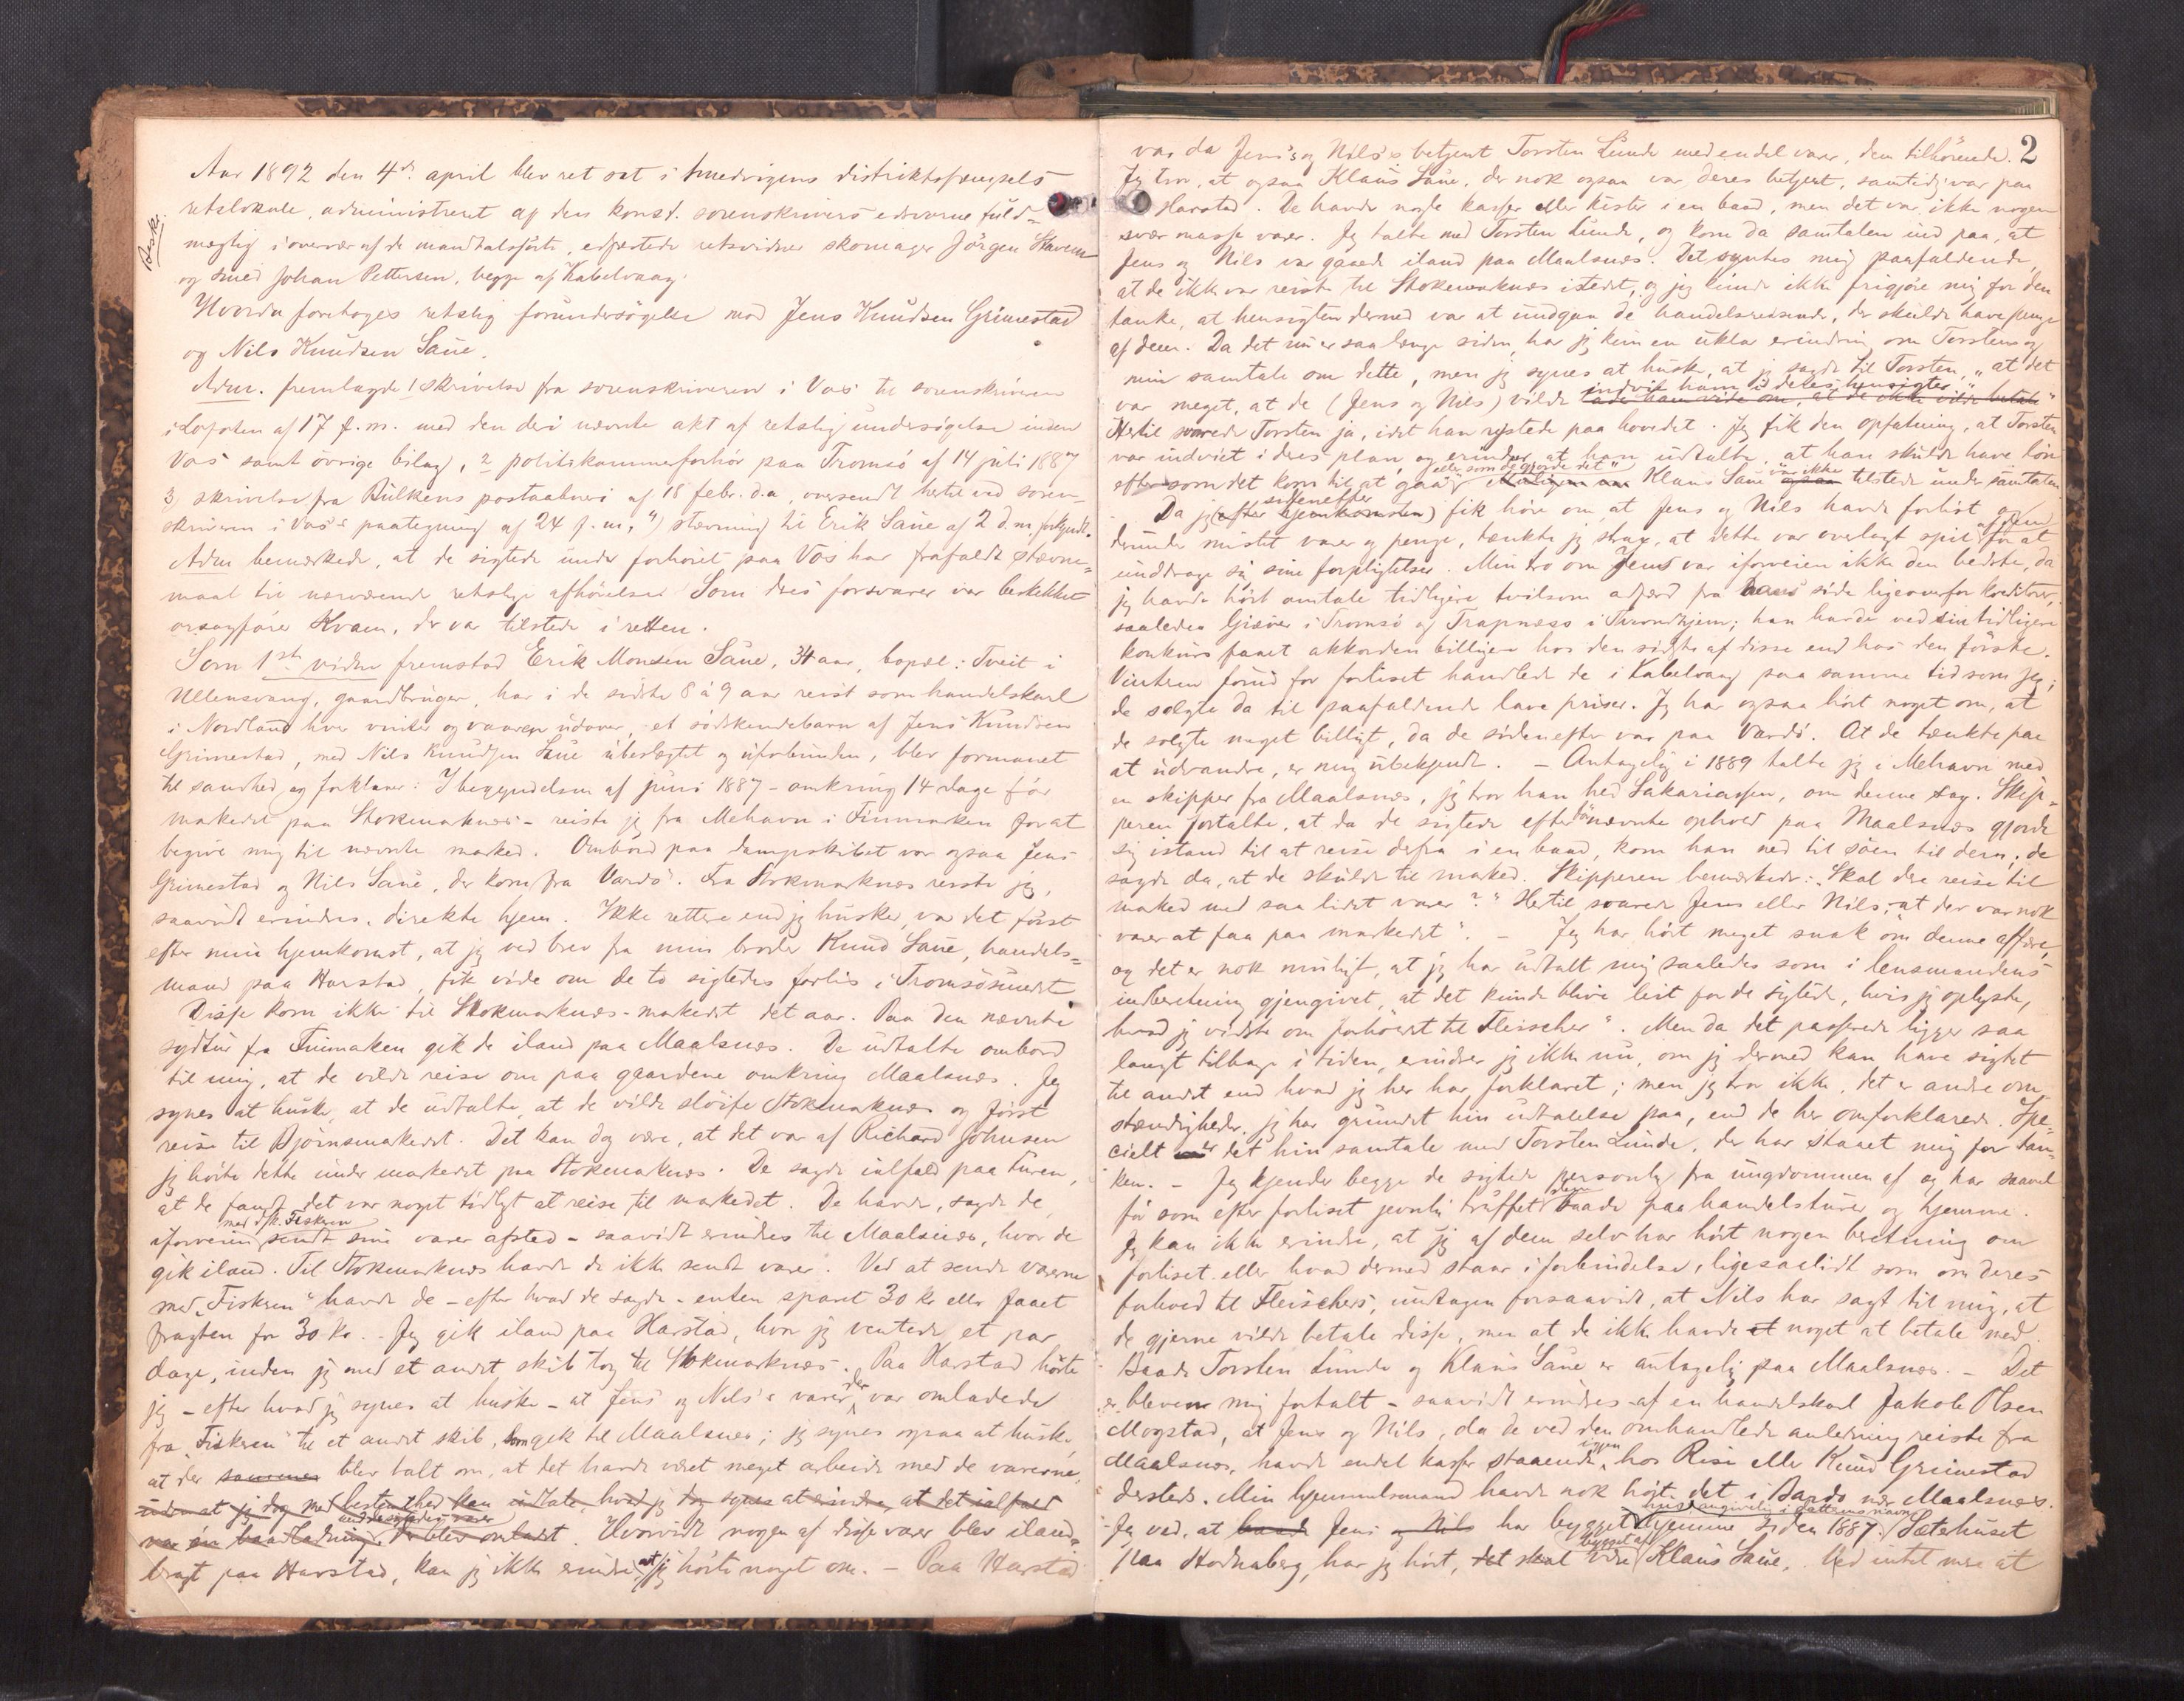 Aar 1892 den 4de april blev ret sat i Smedvigens distriktsfængsels
Beskr.
retslokale, administreret af den konst. sorenskrivers edsvorne fuld-
mægtig i overvær af de mandtalsførte, edfæstede retsvidner skomager Jörgen Stavem
og smed Johan Pettersen, begge af Kabelvaag.
Hvorda foretoges retslig forundersögelse mod Jens Knudsen Grimestad
og Nils Knudsen Saue.
Adm. fremlagde 1 skrivelse fra sorenskriveren i Vos til sorenskriveren
i Lofoten af 17 f.m. med den deri nævnte akt af retslig undersögelse inden
Vos samt övrige bilag, 2 politikammerforhör paa Tromsö af 14 juli 1887
3, skrivelse fra Bulkens postaabneri af 18 febr. d.a., oversendt hertil ved soren-
skriveren i Vos's paategning af 24 f.m., 4) stævning til Erik Saue af 2 d.m. forkyndt.
Adm bemærkede, at de sigtede under forhöret paa Vos har frafaldt stævne-
maal til nærværende retslige afhörelse. Som deres forsvarer var beskikket
orsagförer Kvam, der var tilstede i retten.
Som 1ste vidne fremstod Erik Monsen Saue, 34 aar, bopæl: Tveit i
Ullensvang, gaardbruger, har i de sidste 8 à 9 aar reist som handelskarl
i Nordland hver vinter og vaaren udover, et södskendebarn af Jens Knudsen
Grimestad, med Nils Knudsen Saue ubeslægtet og uforbunden, blev formanet
til sandhed og forklarer: I begyndelsen af juni 1887 - omkring 14 dage för
markedet paa Stokmarknæs - reiste jeg fra Mehavn i Finmarken for at
begive mig til nævnte marked. Ombord paa dampskibet var ogsaa Jens
Grimestad og Nils Saue, der kom fra Vardö. Fra Stokmarknæs reiste jeg,
saavidt erindres, direkte hjem. Ikke rettere end jeg husker, var det först
efter min hjemkomst, at jeg ved brev fra min broder Knud Saue, handels-
mand paa Harstad, fik vide om de to sigtedes forlis i Tromsösundet.
Disse kom ikke til Stokmarknæs-markedet det aar. Paa den nævnte
sydtur fra Finmarken gik de iland paa Maalsnes. De udtalte ombord
til mig, at de vilde reise om paa gaardene omkring Maalsnæs. Jeg
synes at huske, at de udtalte, at de vilde slöife Stokmarknæs og först
reise til Bjørnsmarkedet. Det kan dog være, at det var af Richard Johnsen
jeg hörte dette under markedet paa Stokmarknæs. De sagde ialfald paa turen,
at de fandt det var noget tidligt at reise til markedet. De havde, sagde de,
med d/sk. Fiskeren
iforveien sendt sine varer afsted - saavidt erindres til Maalsnæs, hvor de
gik iland. Til Stokmarknæs havde de ikke sendt varer. Ved at sende varerne
med "Fiskeren" havde de - efter hvad de sagde - enten sparet 30 kr eller faaet
fragten for 30 kr. - Jeg gik iland paa Harstad, hvor jeg ventede et par
dage, inden jeg med et andet skib tog til Stokmarknæs. Paa Harstad hörte
jeg - efter hvad jeg synes at huske - at Jens og Nils's varer der var omladede
fra "Fiskeren" til et andet skib, som gik til Maalsnes; jeg synes ogsaa at huske,
at der sammen blev talt om, at det havde været meget arbeide med de varerne,
uden at jeg dog med bestemthed kan udtale, hvad jeg dog synes at erindre, at det ialfald
var en baadladning der blev omladet. Hvorvidt nogen af disse varer blev iland-
bragt paa Harstad, kan jeg ikke erindre, at jeg hörte noget om. - Paa Harstad
2
var da Jens's og Nils's betjent Torsten Lunde med endel varer, dem tilhörende.
Jeg tror, at ogsaa Klaus Saue, der nok ogsaa var deres betjent, samtidig var paa
Harstad. De havde nogle kasser eller kister i en baad, men det var ikke nogen
svær masse varer. Jeg talte med Torsten Lunde, og kom da samtalen ind paa, at
Jens og Nils var gaaede iland paa Maalsnæs. Det syntes mig paafaldende,
at de ikke var reiste til Stokmarknæs istedet, og jeg kunde ikke frigjöre mig for den
tanke, at hensigten dermed var at undgaa de handelsreisende, der skulde have penge
af dem. Da det nu er saa længe siden, har jeg kun en uklar erindring om Torstens og
min samtale om dette, men jeg synes at huske, at jeg sagde til Torsten, "at det
indvie ham i deres hensigter."
var meget, at de (Jens og Nils) vilde lade ham vide om, at de ikke vilde betale"
Hertil svarede Torsten ja, idet han rystede paa hovedet. Jeg fik den opfatning, at Torsten
var indviet i deres plan, og erindrer, at han udtalte, at han skulde have lön
eller som de gjorde det"
eftersom det kom til at gaa". Klaus Saue var ikke ogsaa tilstede under samtalen.
sidenefter
Da jeg (efter hjemkomsten) fik höre om at Jens og Nils havde forlist og
af dem
derunder mistet varer og penge, tænkte jeg strax, at dette var overlagt spil for at
unddrage sig sine forpligtelser. Min tro om Jens var iforveien ikke den bedste, da
jeg havde hört omtale tidligere tvilsom adfærd fra hans side ligeoverfor kreditorer,
saaledes Giæver i Tromsö og Trapnæss i Throndhjem; han havde ved sin tidligere
konkurs faaet akkorden billigere hos den sidste af disse end hos den förste.
Vinteren forud for forliset handlede de i Kabelvaag paa samme tid som jeg;
de solgte da til paafaldende lave priser. Jeg har ogsaa hört noget om, at
de solgte meget billigt, da de sidenefter var paa Vardö. At de tænkte paa
at udvandre, er mig ubekjendt. - Antagelig i 1889 talte jeg i Mehavn med
en skipper fra Maalsnæs, jeg tror han hed Sakariassen, om denne sag. Skip-
peren fortalte, at da de sigtede efter nævnte ophold paa Maalsnæs gjorde
sig istand til at reise derfra i en baad, kom han ned til söen til dem; de
sagde da, at de skulde til marked. Skipperen bemærkede: "Skal dere reise til
marked med saa lidet varer?" Hertil svarede Jens eller Nils, "at der var nok
varer at faa paa markedet". - Jeg har hört meget snak om denne affære,
og det er nok muligt, at jeg har udtalt mig saaledes som i lensmandens
indberetning gjengivet, at det kunde blive leit for de sigtede, hvis jeg oplyste,
hvad jeg vidste om forholdet til Fleischer". Men da det passerede ligger saa
langt tilbage i tiden, erindrer jeg ikke nu, om jeg dermed kan have sigtet
til andet end hvad jeg her har forklaret; men jeg tror ikke, det er andre om-
stændigheder, jeg har grundet hin udtalelse paa, end de her omforklarede. Spe-
cielt er det hin samtale med Torsten Lunde, der har staaet mig for tan-
ken. - Jeg kjender begge de sigtede personlig fra ungdommen af og har saavel
dem
för som efter forliset jevnlig truffet baade paa handelsturer og hjemme.
Jeg kan ikke erindre, at jeg af dem selv har hört nogen beretning om
forliset eller hvad dermed staar i forbindelse, ligesaalidt som om deres
forhold til Fleischers, undtagen forsaavidt, at Nils har sagt til mig, at
de gjerne vilde betale disse, men at de ikke havde et noget at betale med.
Baade Torsten Lunde og Klaus Saue er antagelig paa Maalsnæs. - Det
er bleven mig fortalt - saavidt erindres af en handelskarl Jakob Olsen
Mogstad, at Jens og Nils, da de ved den omhandlede anledning reiste fra
igjen
Maalsnæs, havde endel kasser staaende hos Risi eller Knud Grimestad
dersteds. Min hjemmelsmand havde nok hört det i Bardo nær Maalsnæs.
huse angivelig i dattens navn
Jeg ved, at baade Jens og Nils har bygget hjemme siden 1887. Sæterhuset
bygget af
paa Hodnaberg, har jeg hört, det skal være Klaus Saue. Ved intet mere at